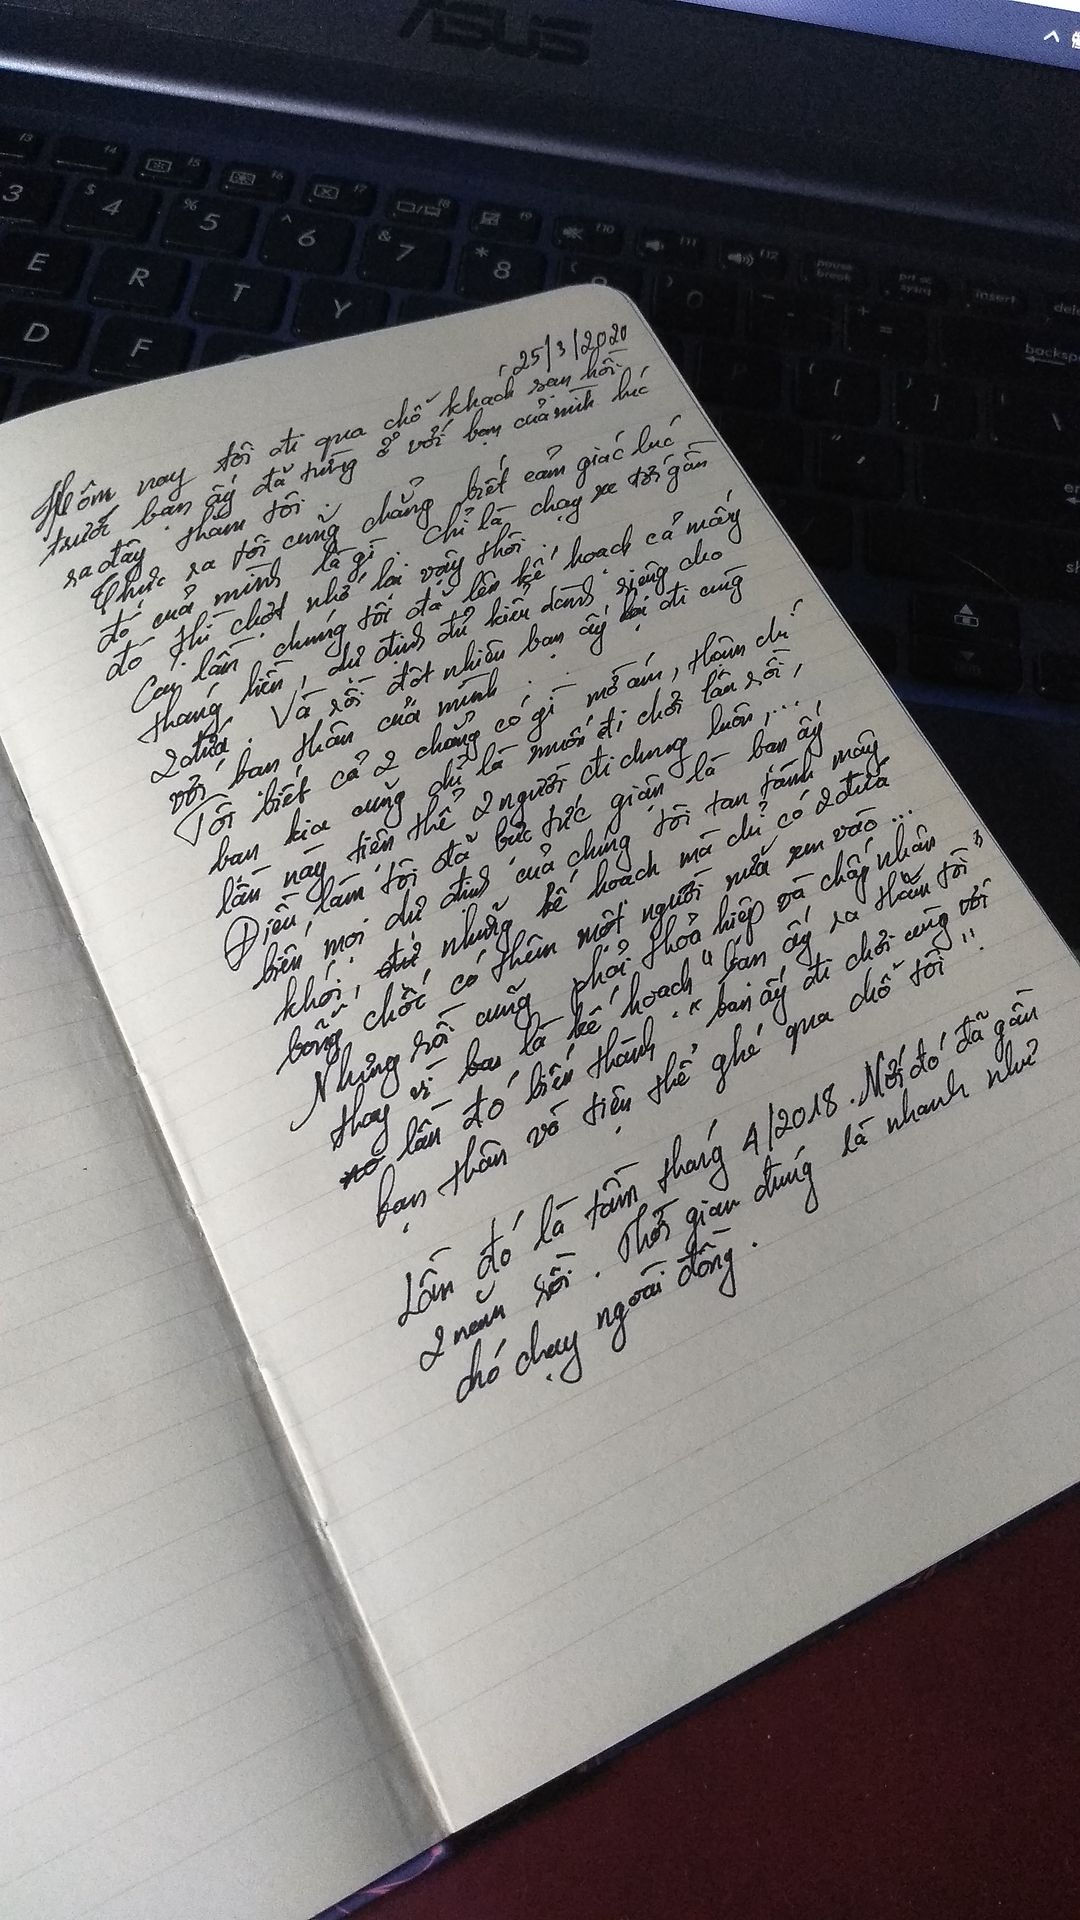 ASUS
f3 f4 f5 f6 f7 f8 f9 f10 f11 f12 pause break prt sc sysrq insert
3 $ 4 % 5 ^ 6 & 7 * 8 ( 9 ) 0 - + =
E R T Y P { [ } ] backsp
D F
25/3/2020
Hôm nay tôi đi qua chỗ khách sạn hồi
trước bạn ấy đã từng ở với bạn của mình lúc
ra đây thăm tôi.
Thực ra tôi cũng chẳng biết cảm giác lúc
đó của mình là gì. Chỉ là chạy xe tới gần
đó thì chợt nhớ lại vậy thôi.
Cái lần chúng tôi đã lên kế hoạch cả mấy
tháng liền, dự định đủ kiểu dành riêng cho
2 đứa. Và rồi đột nhiên bạn ấy lại đi cùng
với bạn thân của mình.
Tôi biết cả 2 chẳng có gì mờ ám, thậm chí
bạn kia cũng chỉ là muốn đi chơi lần rồi,
lần này tiện thể 2 người đi chung luôn,...
Điều làm tôi đã bực tức giận là bạn ấy
biến mọi dự định của chúng tôi tan tành mây
khói, từ những kế hoạch mà chỉ có 2 đứa
bỗng chốc có thêm một người nữa xen vào...
Nhưng rồi cũng phải thoả hiệp và chấp nhận
thay vì ban là kế hoạch "bạn ấy ra thăm tôi"
lần đó biến thành "bạn ấy đi chơi cùng với
bạn thân và tiện thể ghé qua chỗ tôi".
Lần đó là tầm tháng 4/2018. Mới đó đã gần
2 năm rồi. Thời gian đúng là nhanh như
chó chạy ngoài đồng.